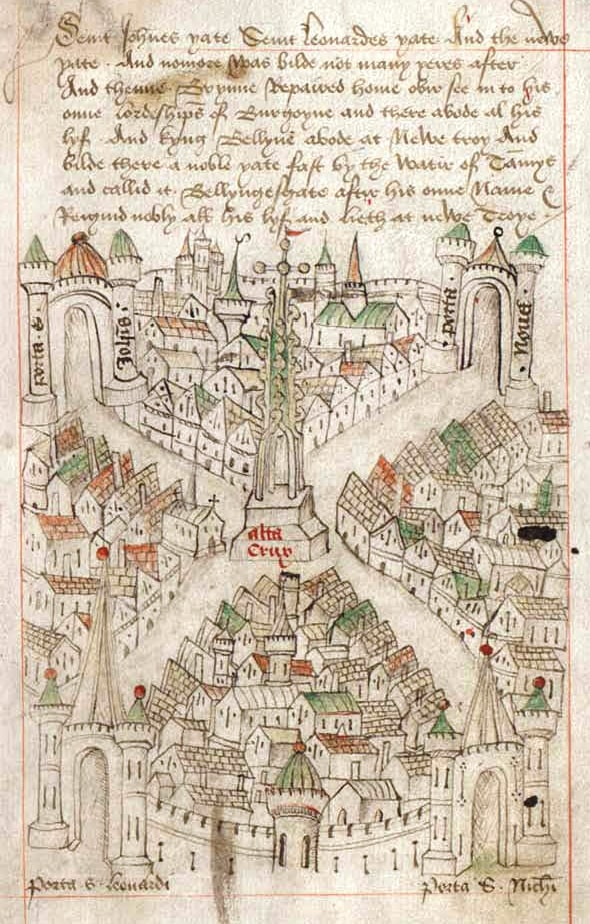 Seint Johnes yate Seint Leonardes yate And the newe
yate . And nomore was bilde not many yeres after
And thenne Brynne Repaired home ovir see in to his
onne lordeships of Burgoyne and there abode al his
lyf . And kyng Bellyne abode at Newe troy And
bilde there a noble yate fast by the Watir of Tamys
and callid it Bellyngesgate aftir his onne Name &
Reigned nobly all his lyf and lieth at newe Troye .
porta S.
Joh'is.
porta
Nova
alta
Crux
porta S. Leonardi
porta S. Nich'i